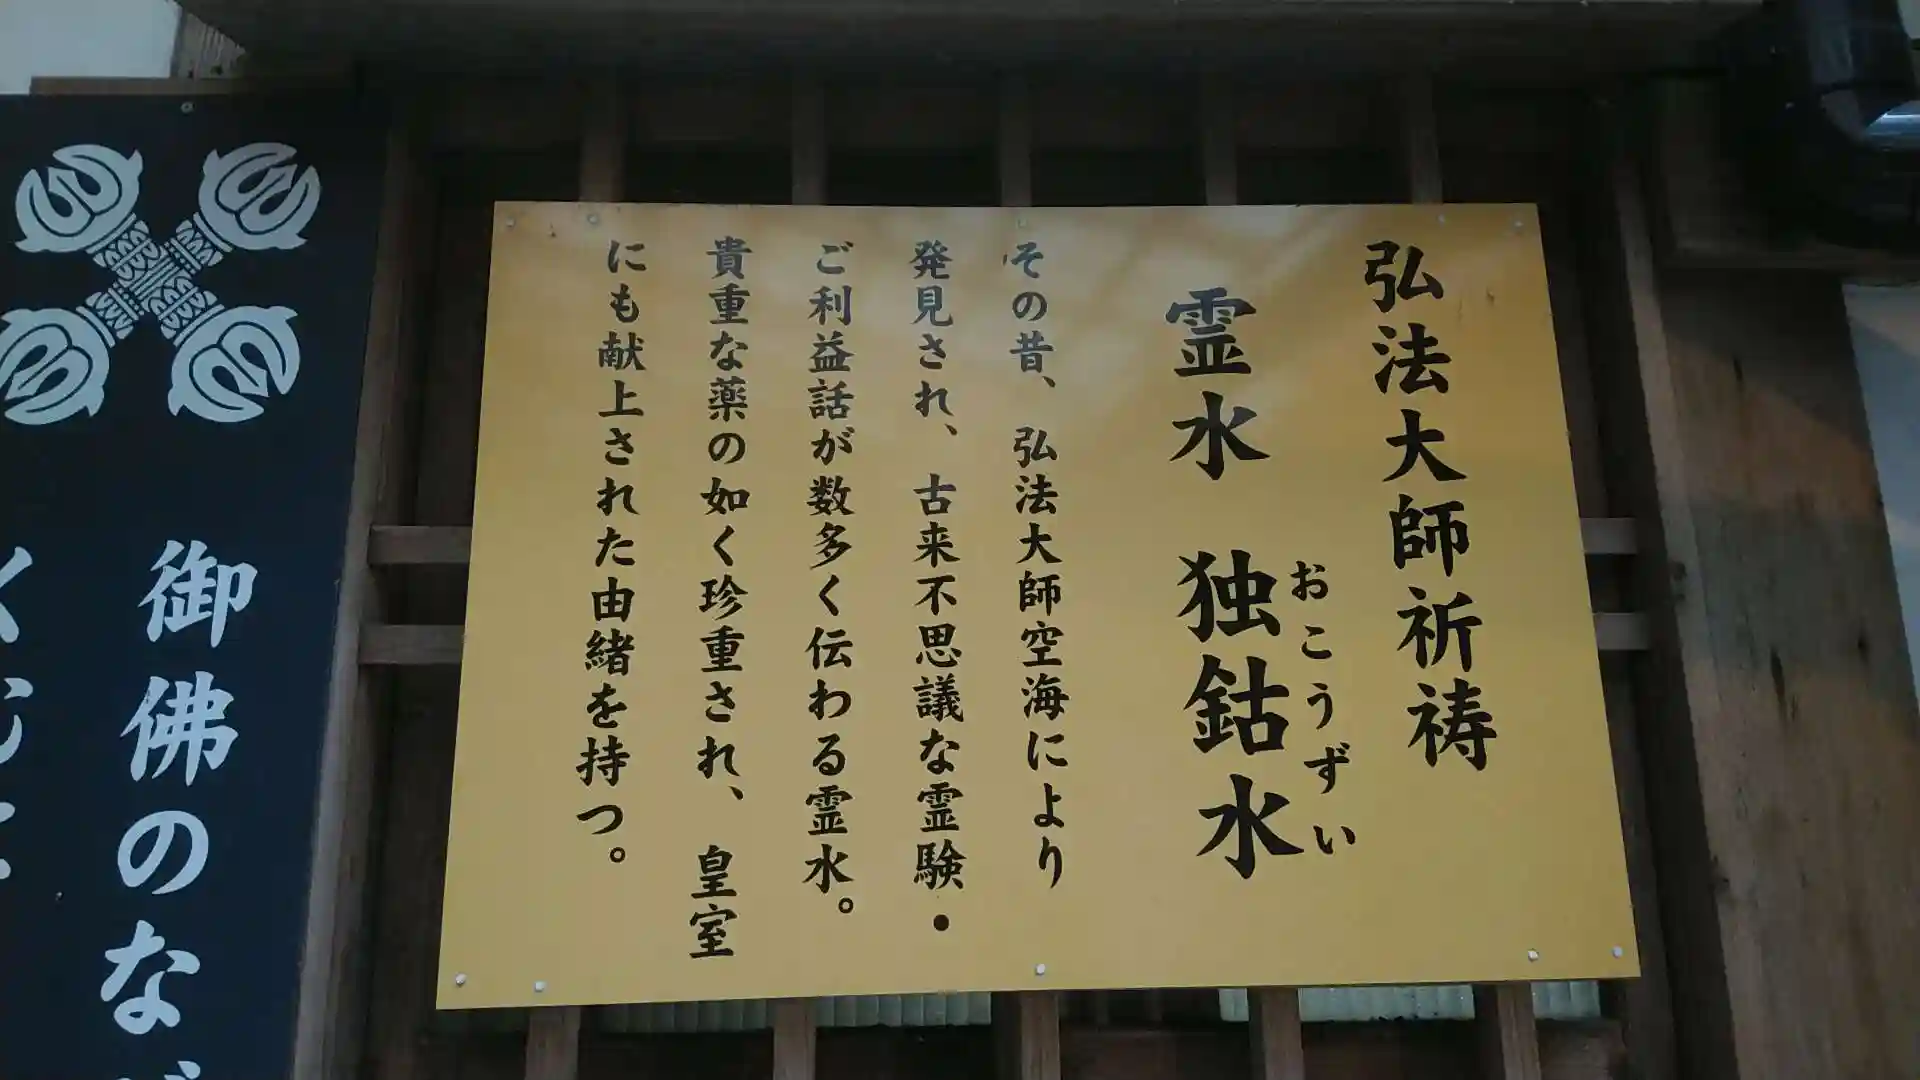 弘法大師祈祷
霊水 独鈷水
おこうずい
その昔、弘法大師空海により
発見され、古来不思議な霊験・
ご利益話が数多く伝わる霊水。
貴重な薬の如く珍重され、皇室
にも献上された由緒を持つ。
御佛のな